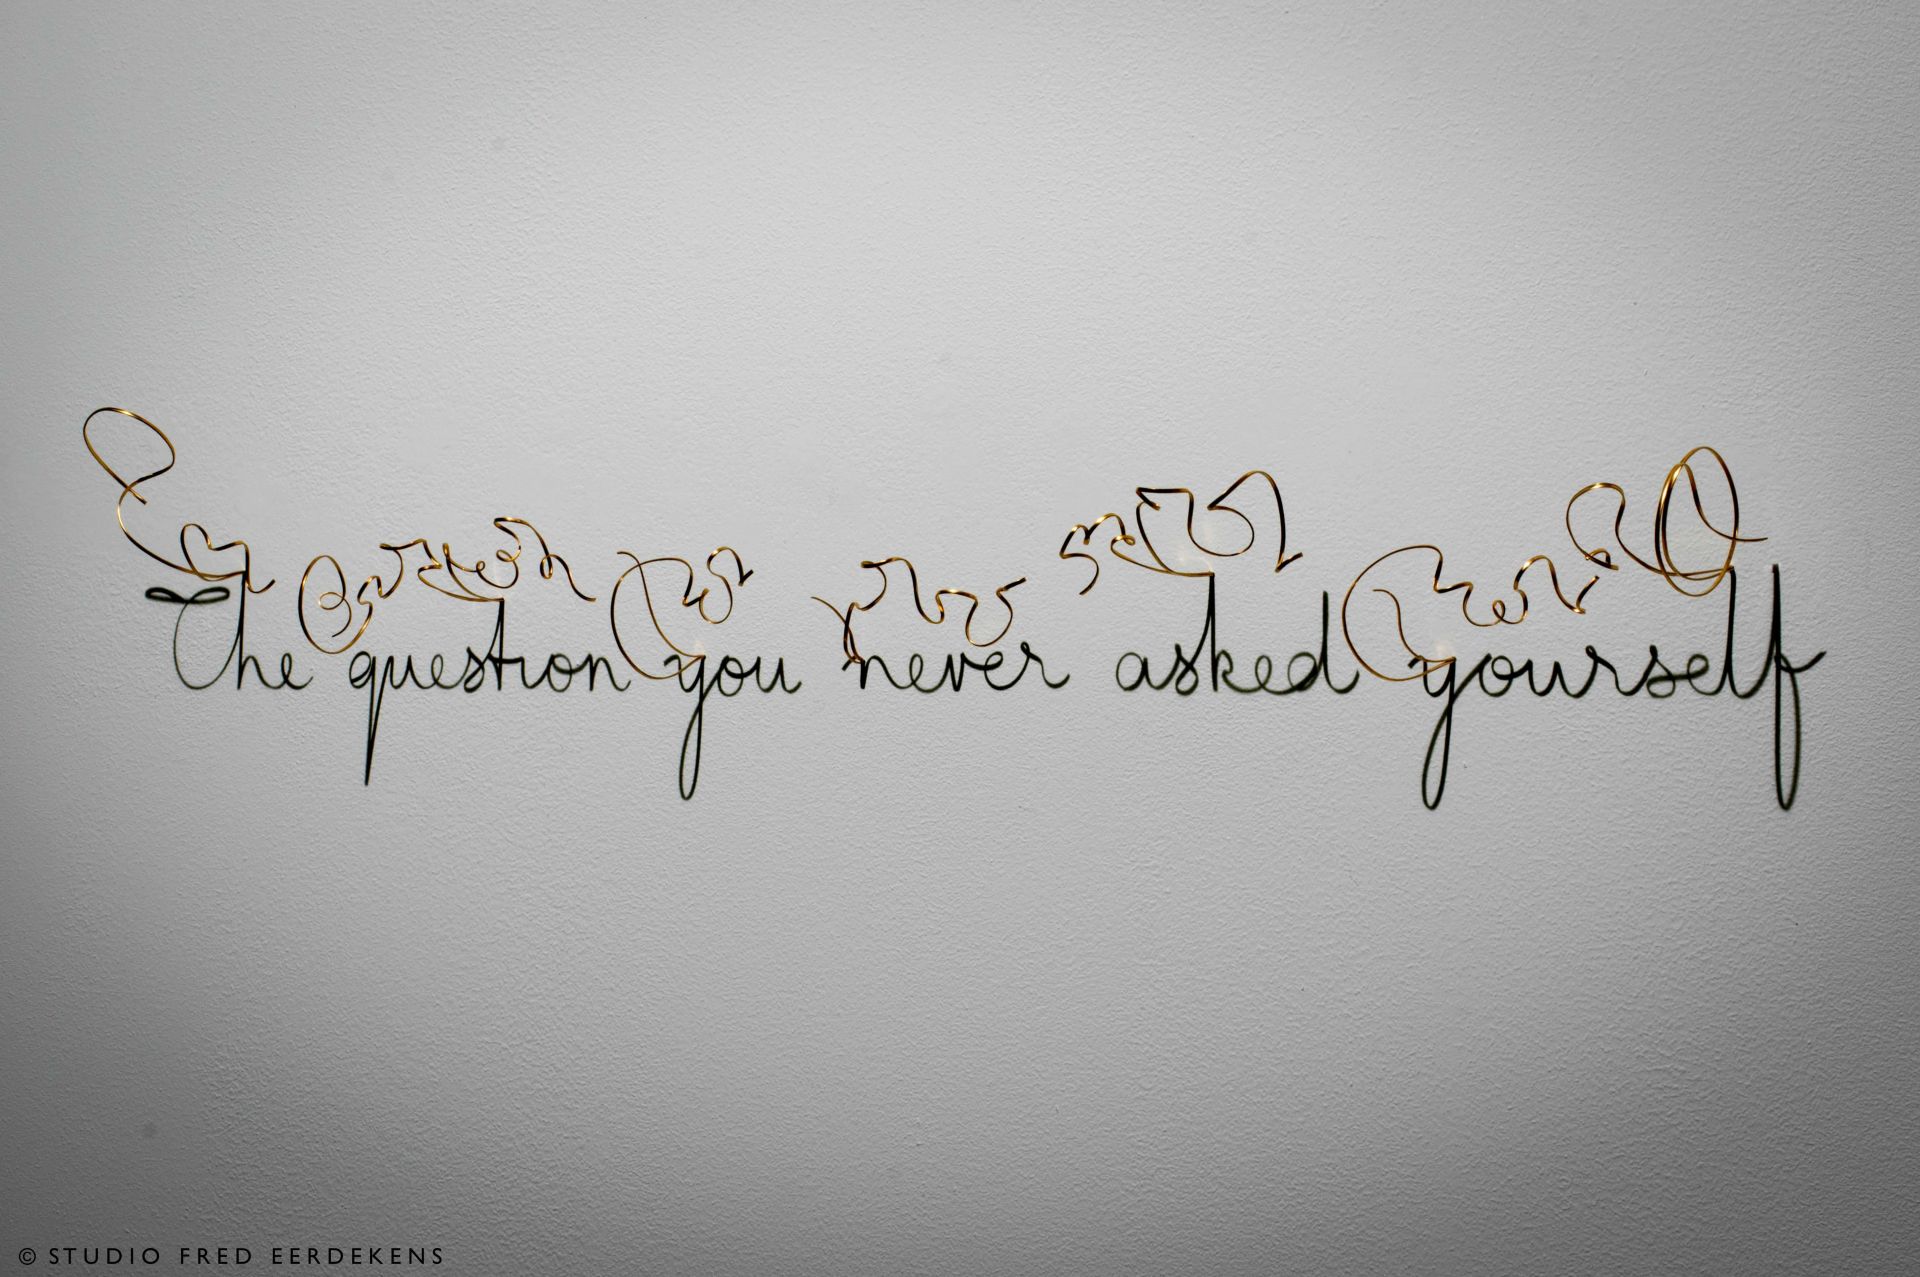 The question you never asked yourself
© STUDIO FRED EERDEKENS